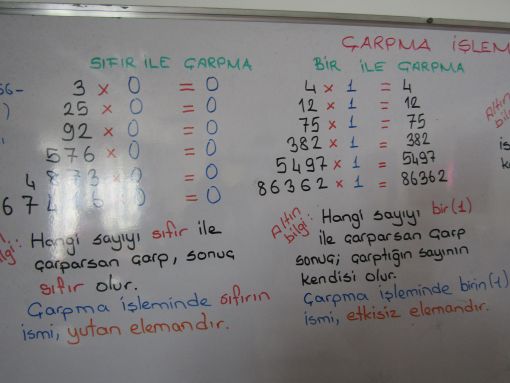 ÇARPMA İŞLEM
SIFIR İLE ÇARPMA
3 x 0 = 0
25 x 0 = 0
92 x 0 = 0
576 x 0 = 0
4 873 x 0 = 0
= 0
Hangi sayıyı sıfır ile
çarparsan çarp, sonuç
sıfır olur.
Çarpma işleminde sıfırın
ismi, yutan elemandır.
BİR İLE ÇARPMA
4 x 1 = 4
12 x 1 = 12
75 x 1 = 75
382 x 1 = 382
5497 x 1 = 5497
86362 x 1 = 86362
Altın bilgi: Hangi sayıyı bir(1)
ile çarparsan çarp
sonuç; çarptığın sayının
kendisi olur.
Çarpma işleminde birin(1)
ismi, etkisiz elemandır.